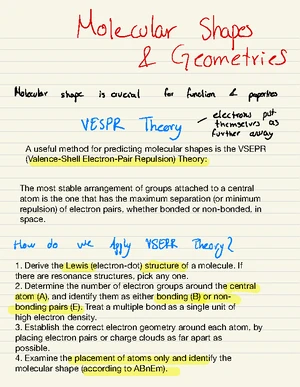 Molecular Shapes
& Geometries
Molecular shape is crucial for function & properties
VESPR Theory
- electrons put
themselves as
further away
A useful method for predicting molecular shapes is the VSEPR
(Valence-Shell Electron-Pair Repulsion) Theory:
The most stable arrangement of groups attached to a central
atom is the one that has the maximum separation (or minimum
repulsion) of electron pairs, whether bonded or non-bonded, in
space.
How do we Apply VSEPR Theory?
1. Derive the Lewis (electron-dot) structure of a molecule. If
there are resonance structures, pick any one.
2. Determine the number of electron groups around the central
atom (A), and identify them as either bonding (B) or non-
bonding pairs (E). Treat a multiple bond as a single unit of
high electron density.
3. Establish the correct electron geometry around each atom, by
placing electron pairs or charge clouds as far apart as
possible.
4. Examine the placement of atoms only and identify the
molecular shape (according to ABnEm).